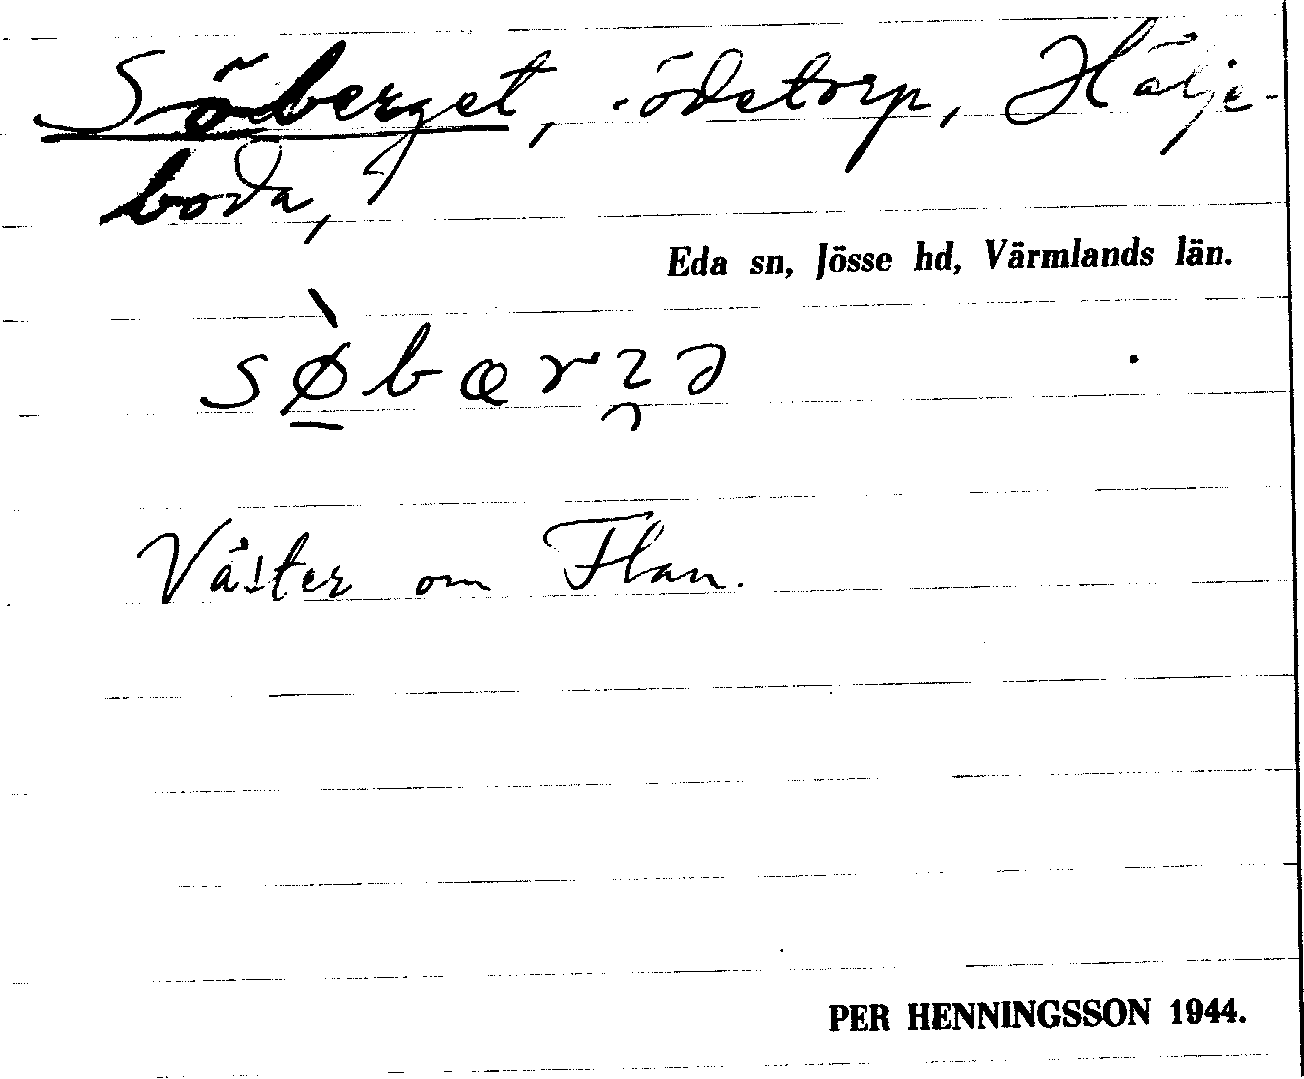 Söberget, ödetorp, Hälje-
boda,
Eda sn, Jösse hd, Värmlands län.
Väster om Flan.
PER HENNINGSSON 1944.